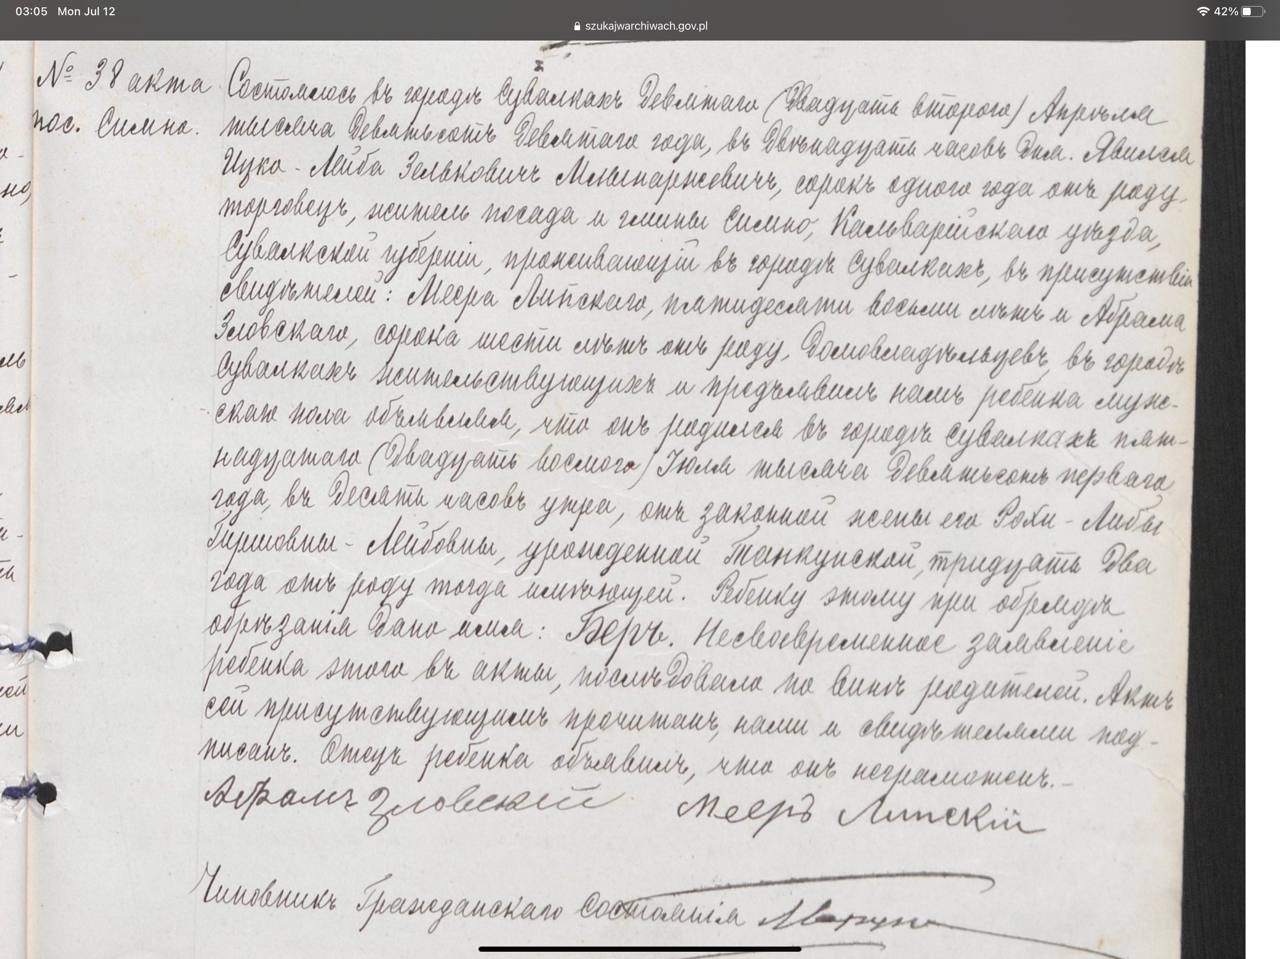 03:05 Mon Jul 12
42%
szukajwarchiwach.gov.pl
№ 38 акта
пос. Симно.
Состоялось въ городѣ Сувалкахъ Девятаго (Двадцать второго) Апрѣля
тысяча Девятьсотъ Девятаго года, въ Двѣнадцать часовъ Дня. Явился
Ицко-Лейба Зельковичъ Млынаржевичъ, сорокъ одного года отъ роду,
торговецъ, житель посада и гмины Симно, Кальварійскаго уѣзда,
Сувалкской губерніи, проживающій въ городѣ Сувалкахъ, въ присутствіи
свидѣтелей: Меера Липскаго, пятидесяти восьми лѣтъ и Абрама
Зловскаго, сорока шести лѣтъ отъ роду, Домовладѣльцевъ, въ городѣ
Сувалкахъ жительствующихъ и предъявилъ намъ ребенка муж-
скаго пола объявляя, что онъ родился въ городѣ Сувалкахъ пят-
надцатаго (Двадцать восмого) Іюля тысяча Девятьсотъ перваго
года, въ Десять часовъ утра, отъ законной жены его Рохи-Либы
Гиршовны-Лейбовны, урожденной Танкунской, тридцать Два
года отъ роду тогда имѣющей. Ребенку этому при обрядѣ
обрѣзанія Дано имя: Беръ. Несвоевременное заявленіе
ребенка этого въ акты, послѣдовало по винѣ родителей. Актъ
сей присутствующимъ прочитанъ, нами и свидѣтелями под-
писанъ. Отецъ ребенка объявилъ, что онъ неграмотенъ.-
Абрамъ Зловскій Мееръ Липскій
Чиновникъ Гражданскаго Состоянія